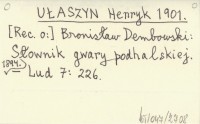 UŁASZYN Henryk 1901.
[Rec. o:] Bronisław Dembowski:
Słownik gwary podhalskiej.
1894.
Lud 7: 226.